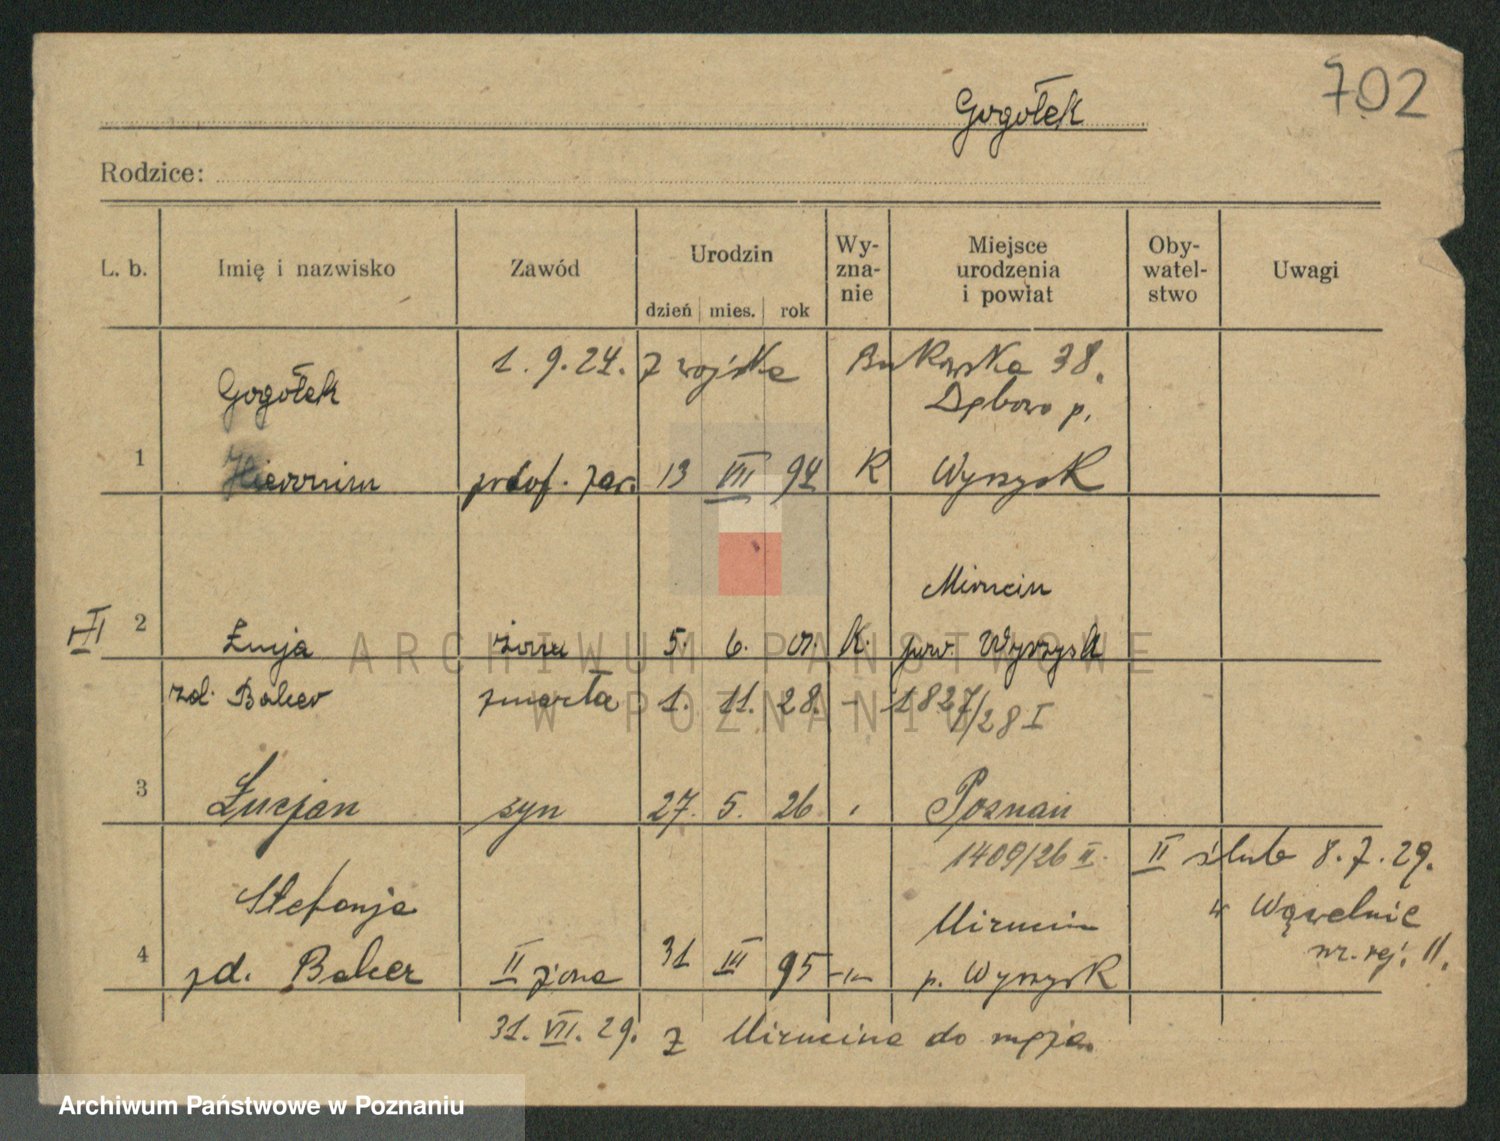 702
Gogołek
Rodzice:
L. b. Imię i nazwisko Zawód Urodzin dzień mies. rok Wy-zna-nie Miejsce urodzenia i powiat Oby-watel-stwo Uwagi
1. 9. 24. z wojska Bukowska 38.
Gogołek Dębowo p.
1 Hieronim 13 VII 94 K Wyrzysk
Mirucin
2 Łucja żona 5. 6. 01. K. pow. Wyrzysk
zd. Baker zmarła 1. 11. 28. - 1827/28 I
3 Łucjan syn 27. 5. 26 Poznań
1409/26 II. II ślub 8. 7. 29.
Stefanja Mirucin w Wąwelnie
4 zd. Baker II żona 31 III 95 -"- p. Wyrzysk nr. rej. 11.
31. VII. 29. z Mirucina do męża.
ARCHIWUM PAŃSTWOWE
W POZNANIU
Archiwum Państwowe w Poznaniu